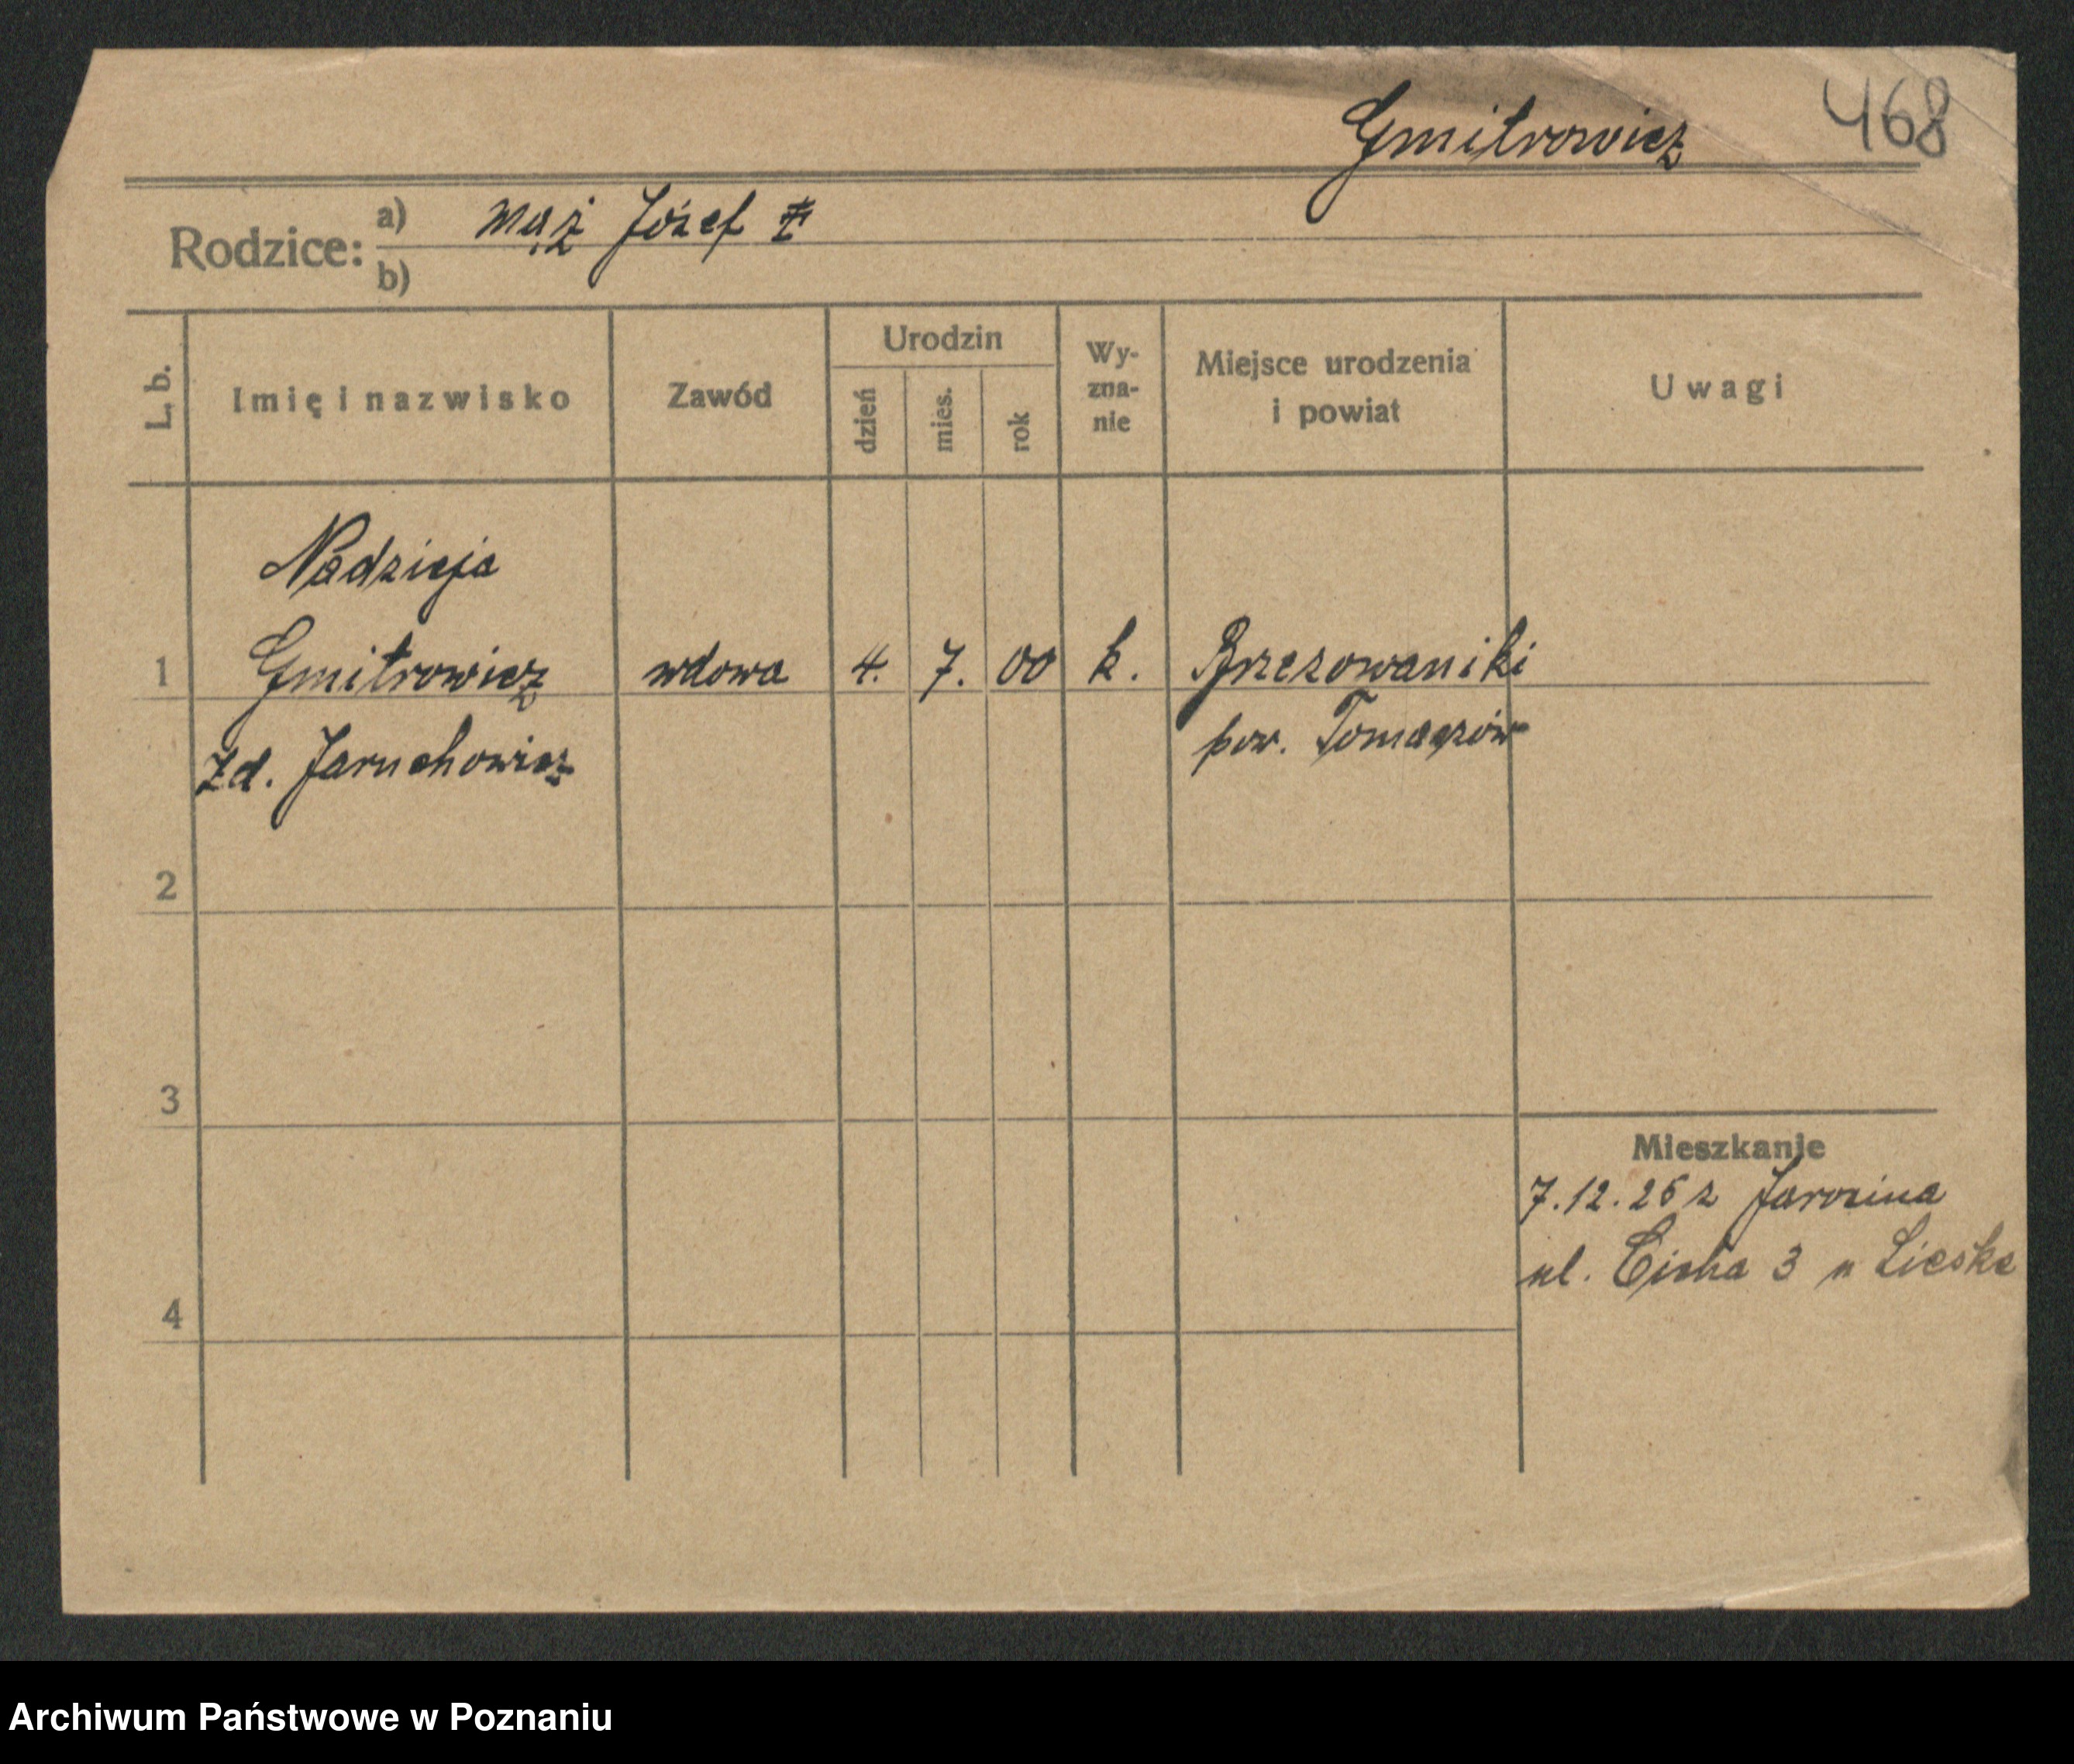 Gmitrowicz 468
Rodzice: a) Mąż Józef
b)
L. b. Imię i nazwisko Zawód Urodzin dzień mies. rok Wy-zna-nie Miejsce urodzenia i powiat Uwagi
Nadzieja
1 Gmitrowicz wdowa 4. 7. 00 k. Brzezowaniki
zd. Jaruchowicz pow. Tomaszów
2
3
Mieszkanie
7.12.26 z Jarocina
ul. Cicha 3 u Lieske
4
Archiwum Państwowe w Poznaniu